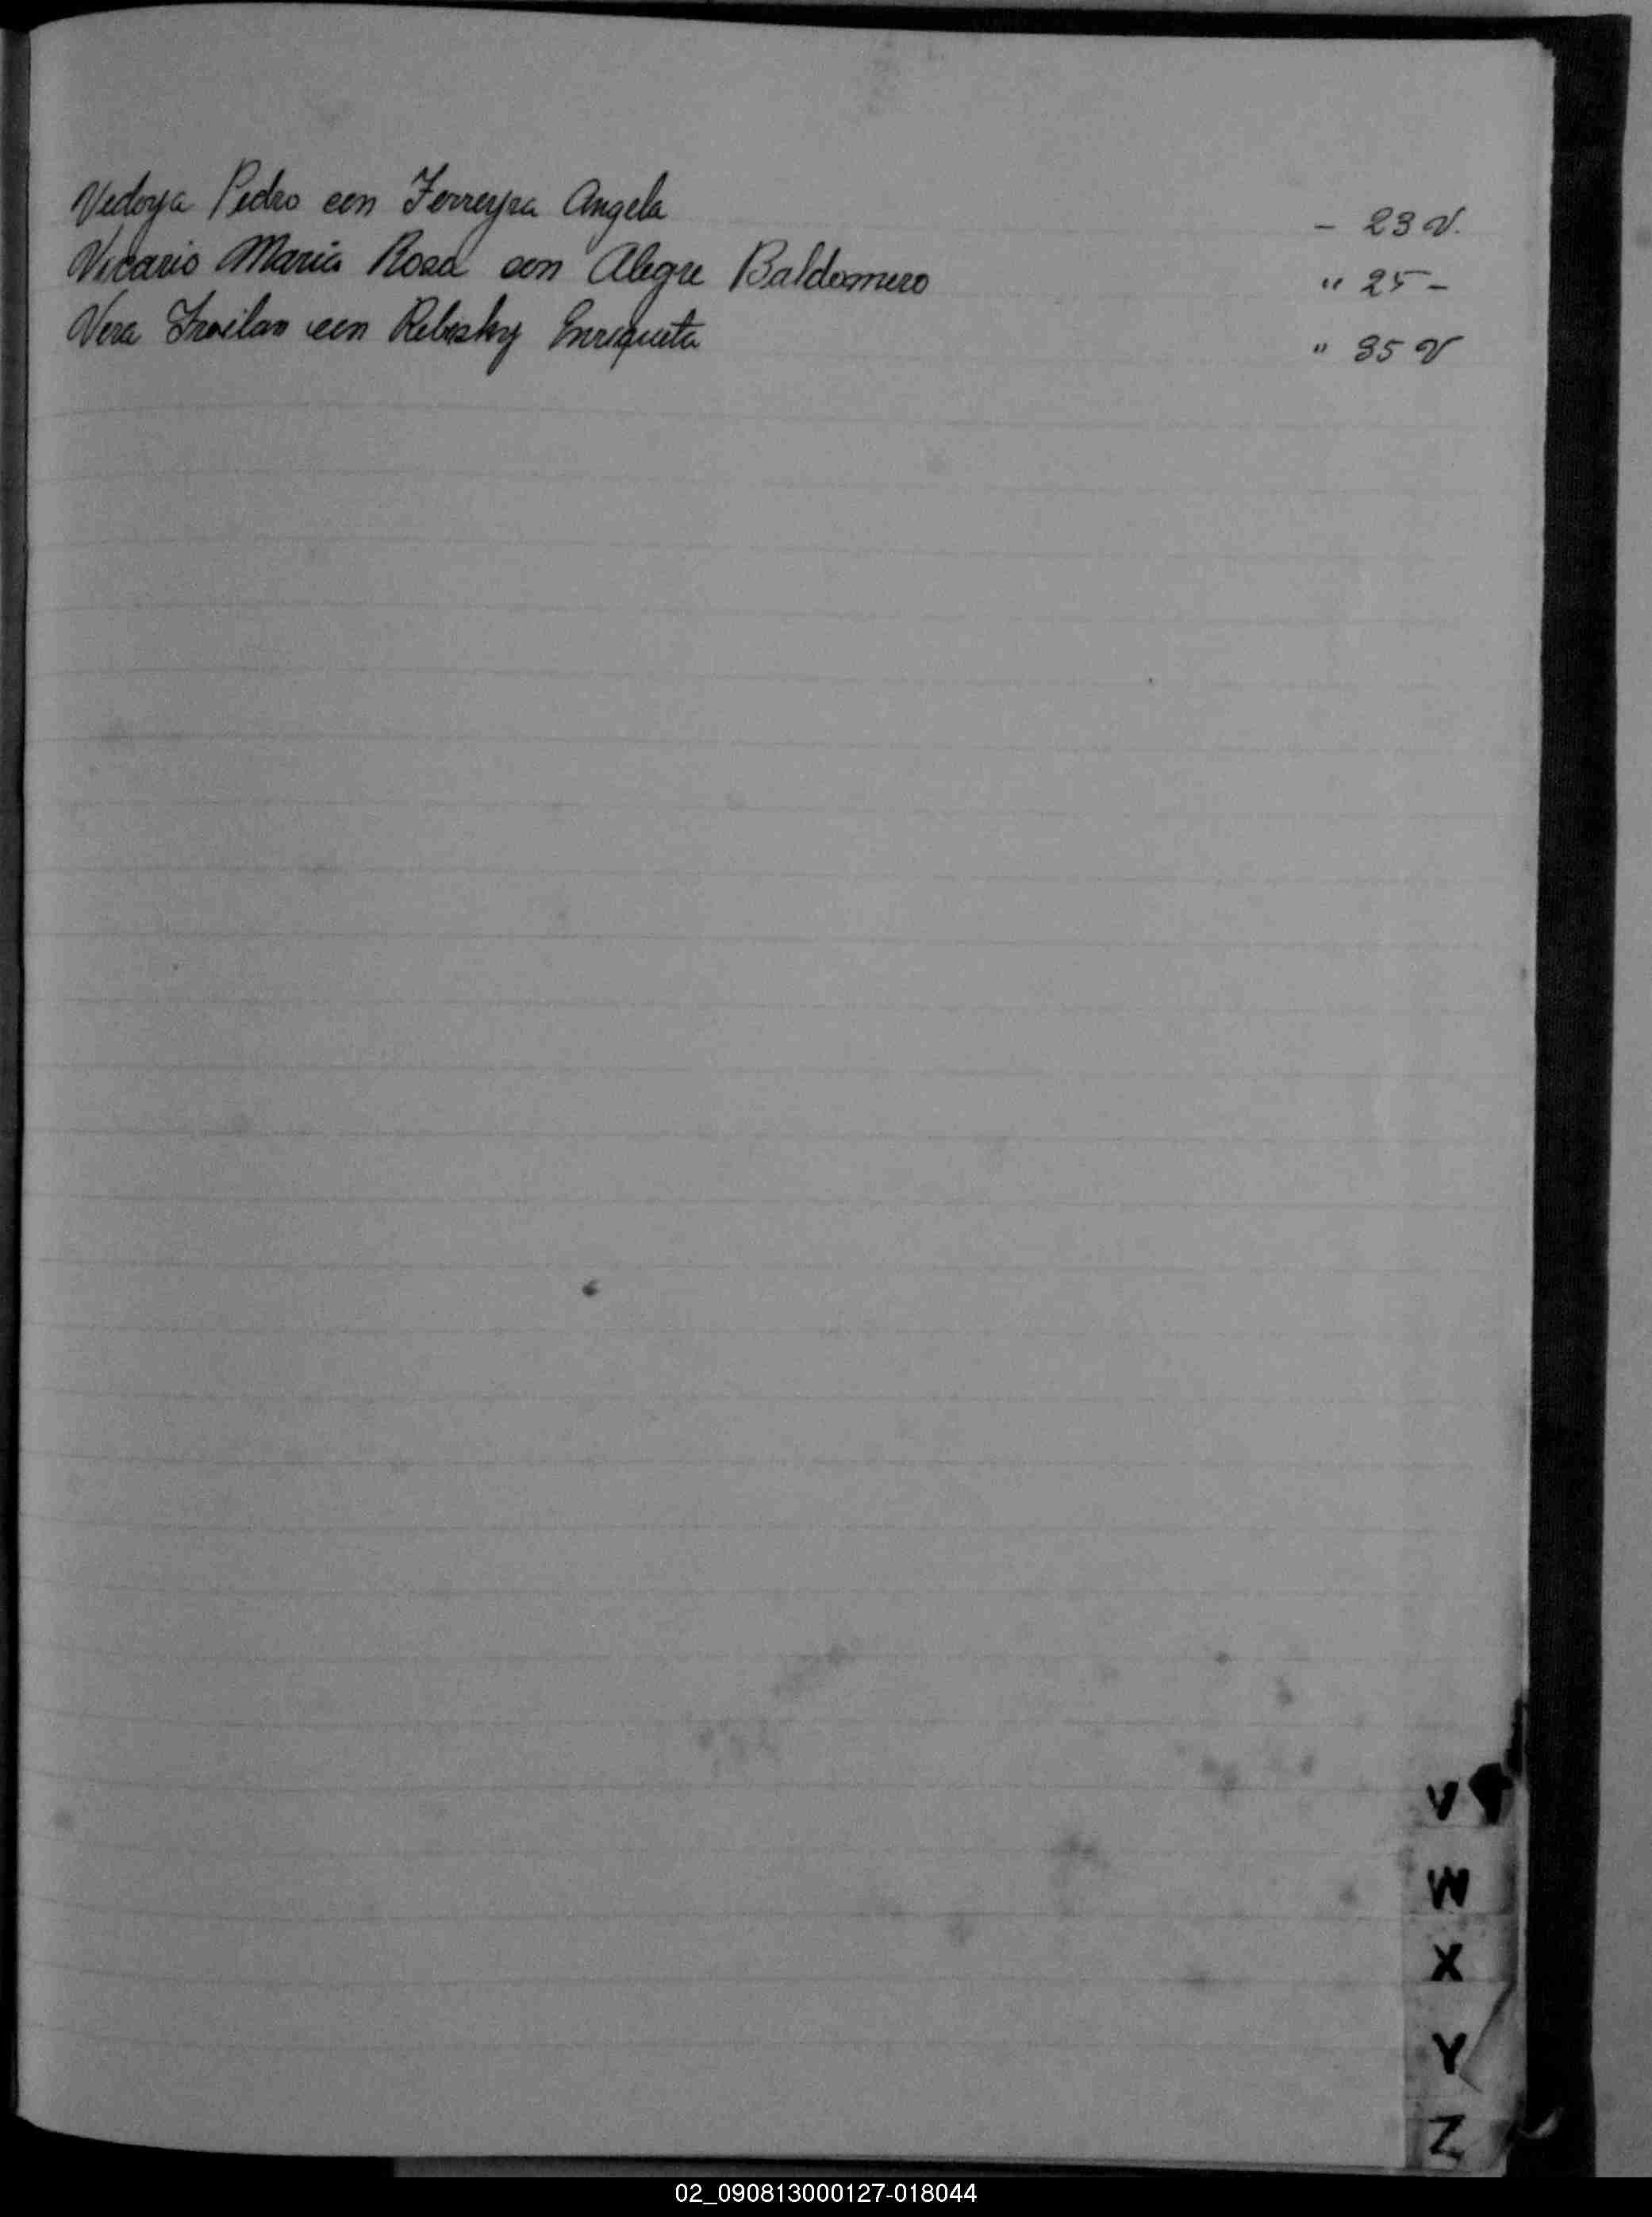 Vedoya Pedro con Ferreyra Angela - 23 V.
Vicario Maria Rosa con Alegre Baldomero " 25 -
Vera Froilan con Enriqueta " 35 V
V
W
X
Y
Z
02_090813000127-018044